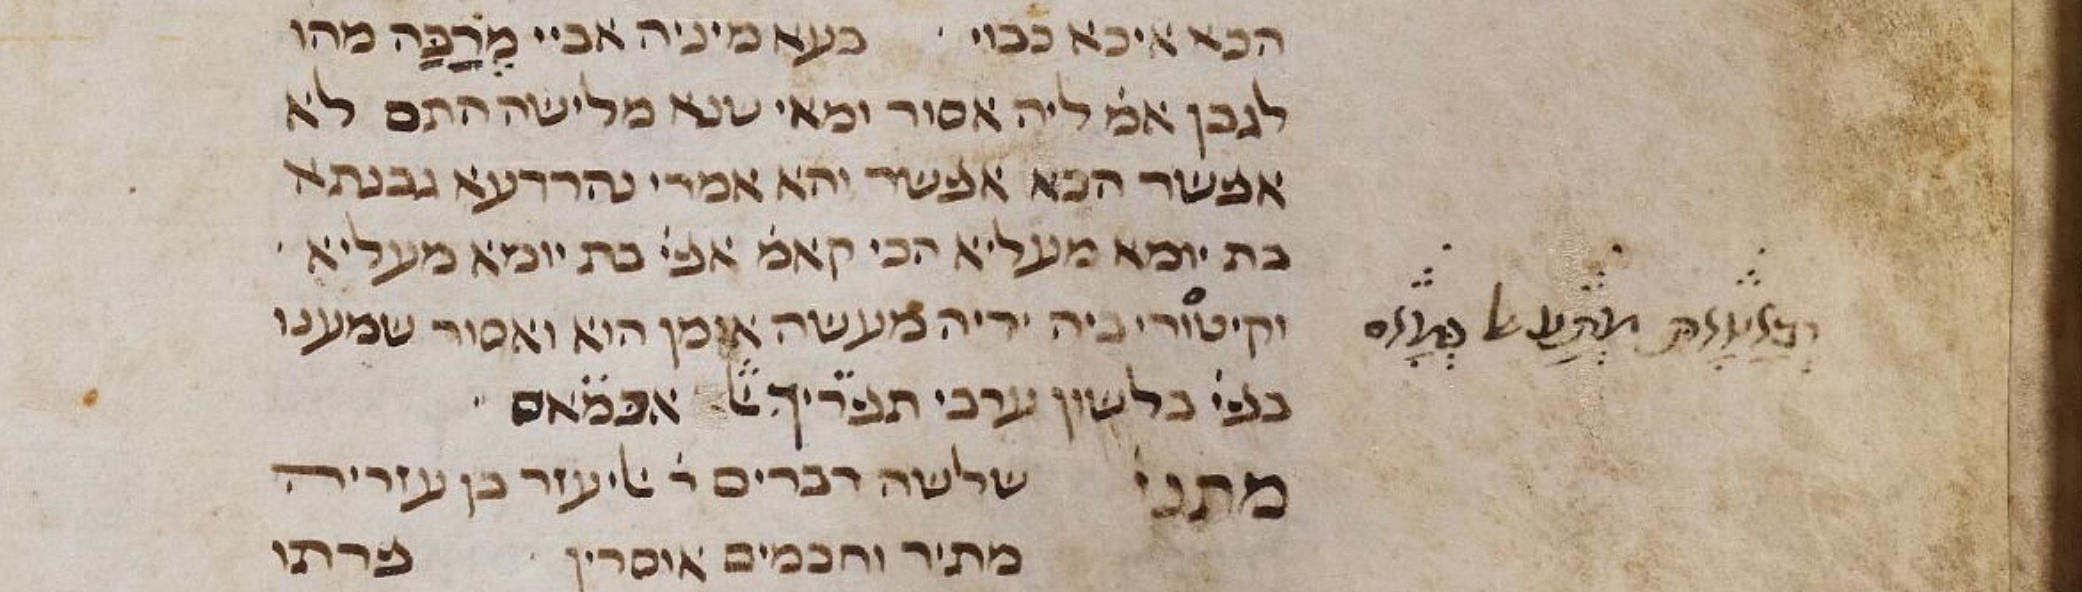 הכא איכא כבוי בעא מיניה אביי מְרַבָּה מהו
לגבן אמ׳ ליה אסור ומאי שנא מלישה התם לא
אפשר הכא אפשר והא אמרי נהרדעא גבנתא
בת יומא מעליא הכי קאמ׳ אפי׳ בת יומא מעליא
וקיטורי ביה ידיה מעשה אומן הוא ואסור שמענו
בפי׳ בלשון ערבי תפריך אכמאם
מתני׳ שלשה דברים ר׳ אליעזר בן עזריה
מתיר וחכמים אוסרין פרתו